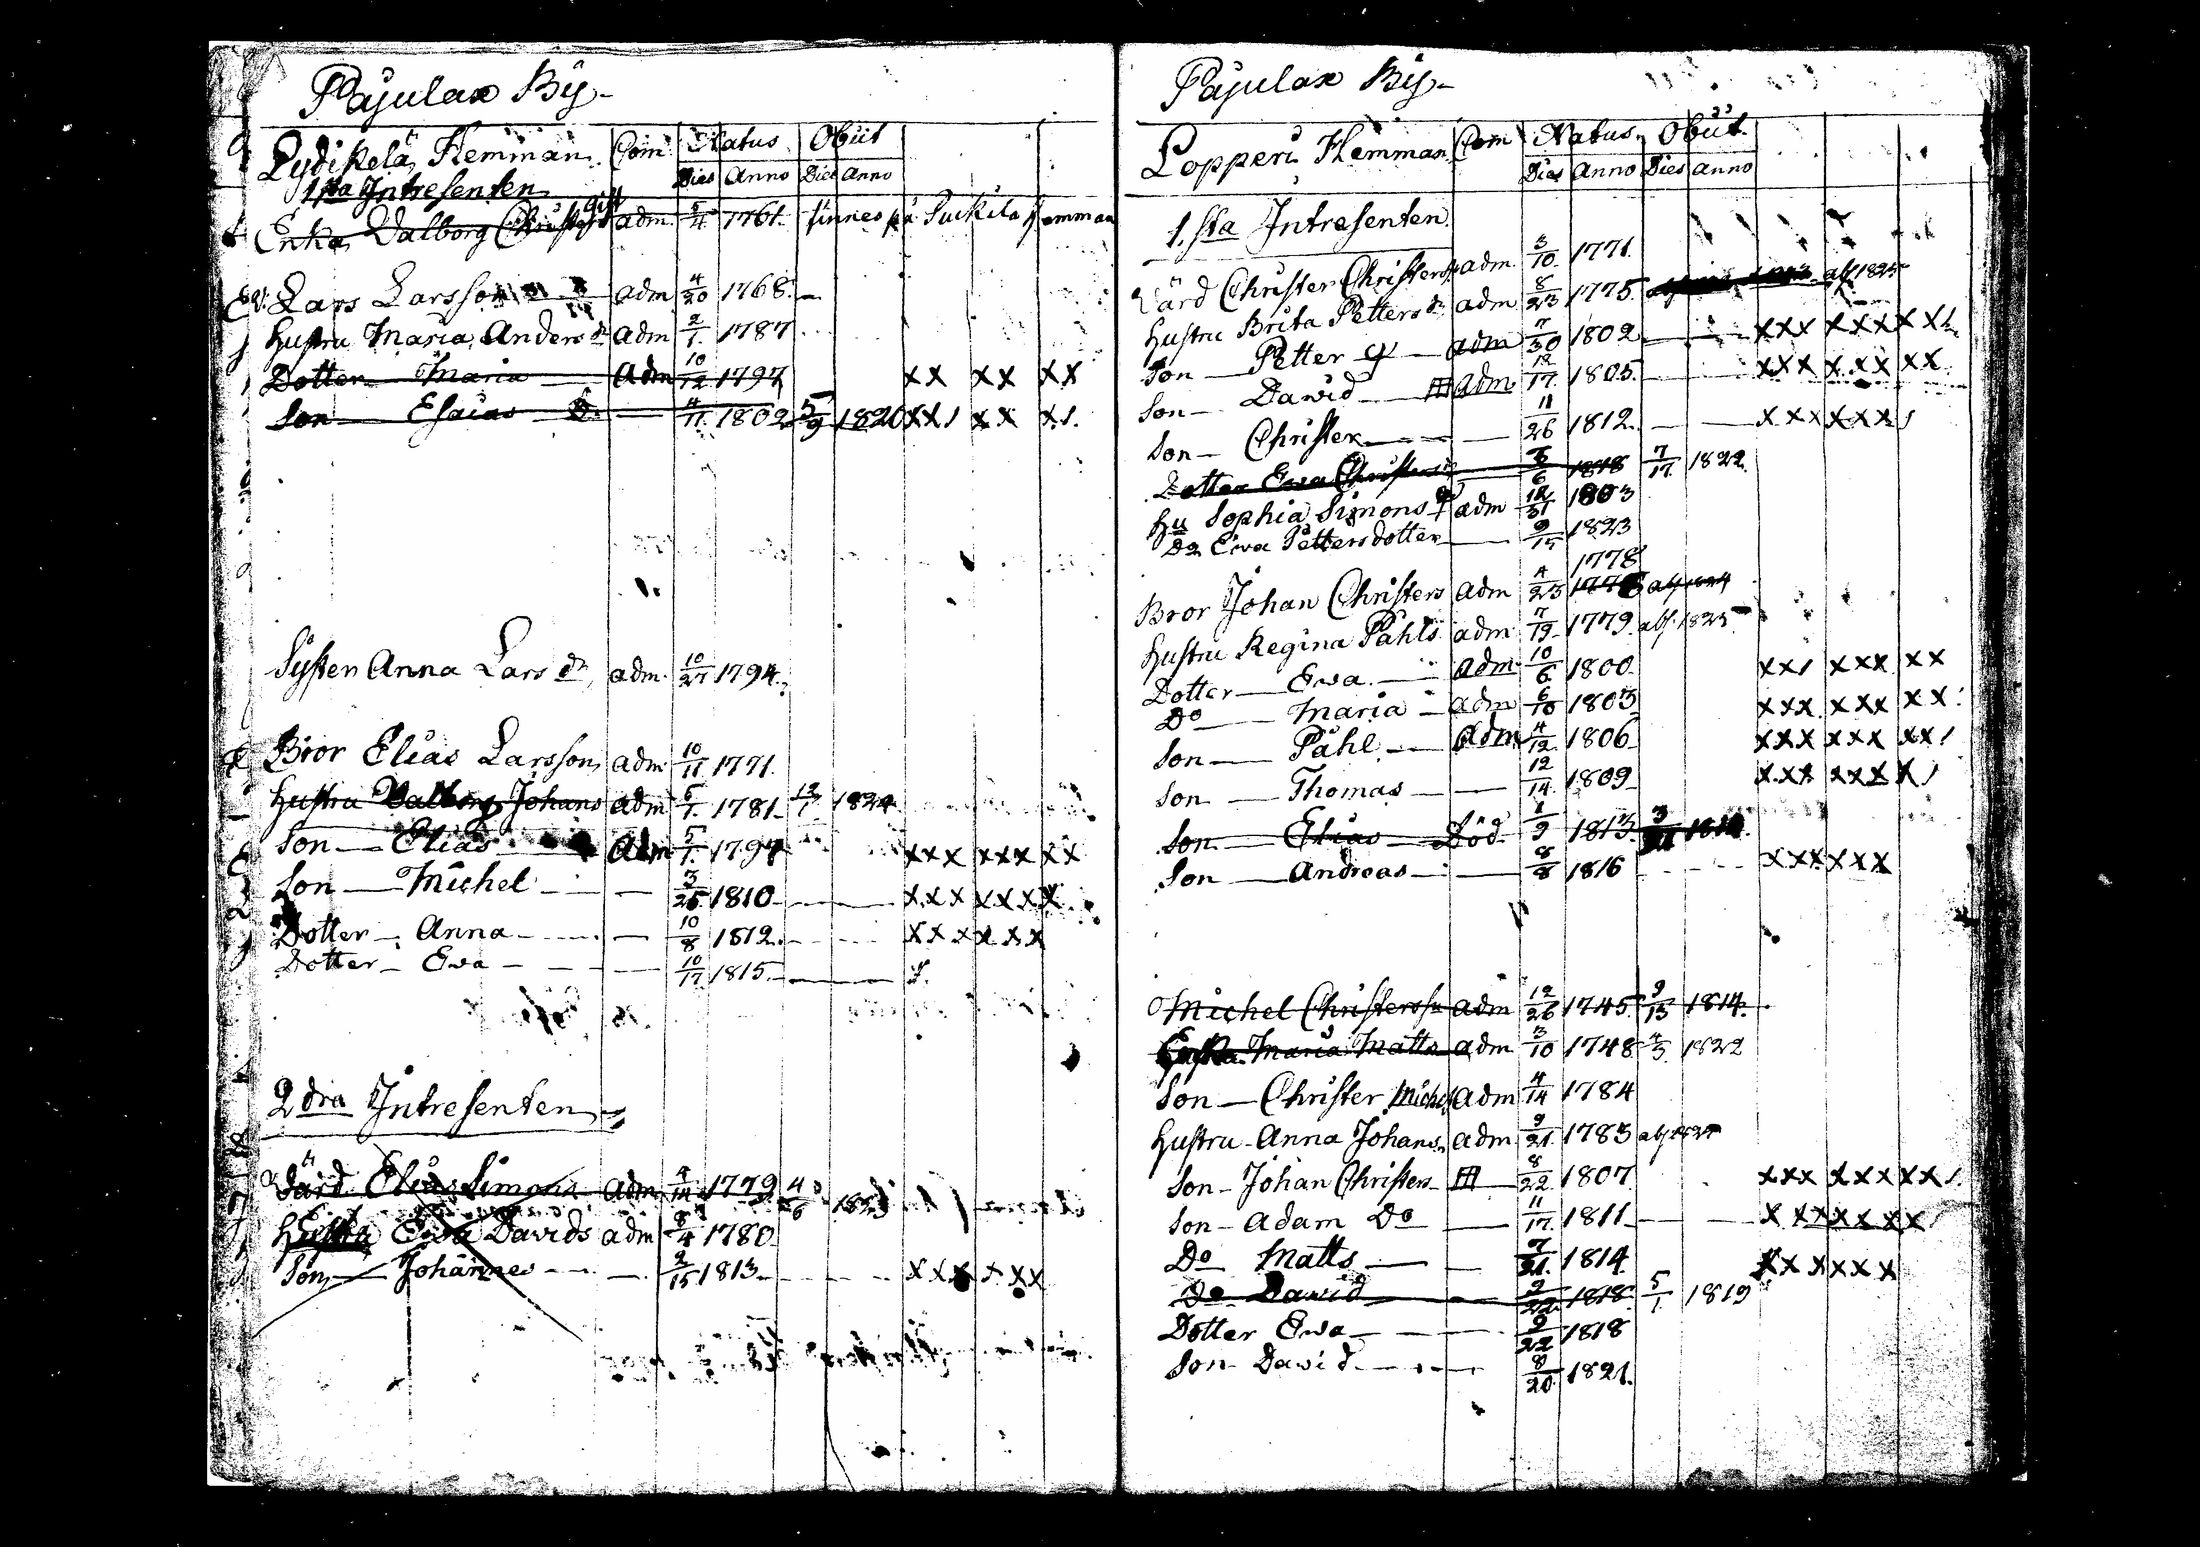 Påjulax By
Lydikelä Hemman Com Natus Obiit
Dies Anno Dies Anno
1sta Intresenten
Enka Valborg Christers gift adm 5/4 1761 finnes på Suikila Hemman
Lars Larsson adm 4/20 1768
Hustru Maria Anders dr adm 2/1 1787
Dotter Maria adm 10/12 1797 xx xx xx
Son Esaias D. 4/11 1802 5/9 1820 xx/ xx x/
Syster Anna Lars dr adm 10/27 1794
Bror Elias Larsson adm 10/11 1771
Hustru Valborg Johans adm 6/1 1781 12/1 1824
Son Elias adm 5/1 1797 xxx xxx xx
Son Michel 3/25 1810 xxx xxxx
Dotter Anna 10/8 1812 xxxxxx
Dotter Ewa 10/17 1815
2dra Intresenten
Värd Elias Simons adm 4/14 1779 4/6 1823
Ewa Davids adm 8/4 1780
Son Johannes 2/15 1813 xxx xxx
Påjulax By
Lopperi Hemman Com Natus Obiit
Dies Anno Dies Anno
1.sta Intresenten
Värd Christer Christers adm 3/10 1771
Hustru Brita Petters dr adm 8/23 1775 abs 1825
Son Petter g adm 7/30 1802 xxx xxxx xx
Son David adm 12/17 1805 xxx xxx xx
Son Christer 11/26 1812 xxx xxx/
Dotter Ewa Christers 6 1818 7/17 1822
Hu Sophia Simons dr adm 12/31 1803
Do Ewa Pettersdotter 9/15 1823
1778
Bror Johan Christers adm 4/25 abs 1824
Hustru Regina Påhls adm 7/19 1779 abs 1825
Dotter Ewa adm 10/6 1800 xx/ xxx xx
Do Maria adm 6/10 1803 xxx xxx xx
Son Påhl adm 4/12 1806 xxx xxx xx/
Son Thomas 12/14 1809 xxx xxxx/
Son Elias Död 1/9 1813 3
Son Andreas 8/8 1816 xxx xxx
Michel Christersson adm 12/26 1745 9/15 1814
Maria Matts adm 3/10 1748 4/3 1822
Son Christer Michels adm 4/14 1784
Hustru Anna Johans adm 9/21 1783
Son Johan Christers 8/22 1807 xxx xxxxx/
Son Adam Do 11/17 1811 xxxxxxx/
Do Matts 7/21 1814 xxxxxx
Do David 9/22 1818 5/1 1819
Dotter Ewa 9/22 1818
Son David 8/20 1821